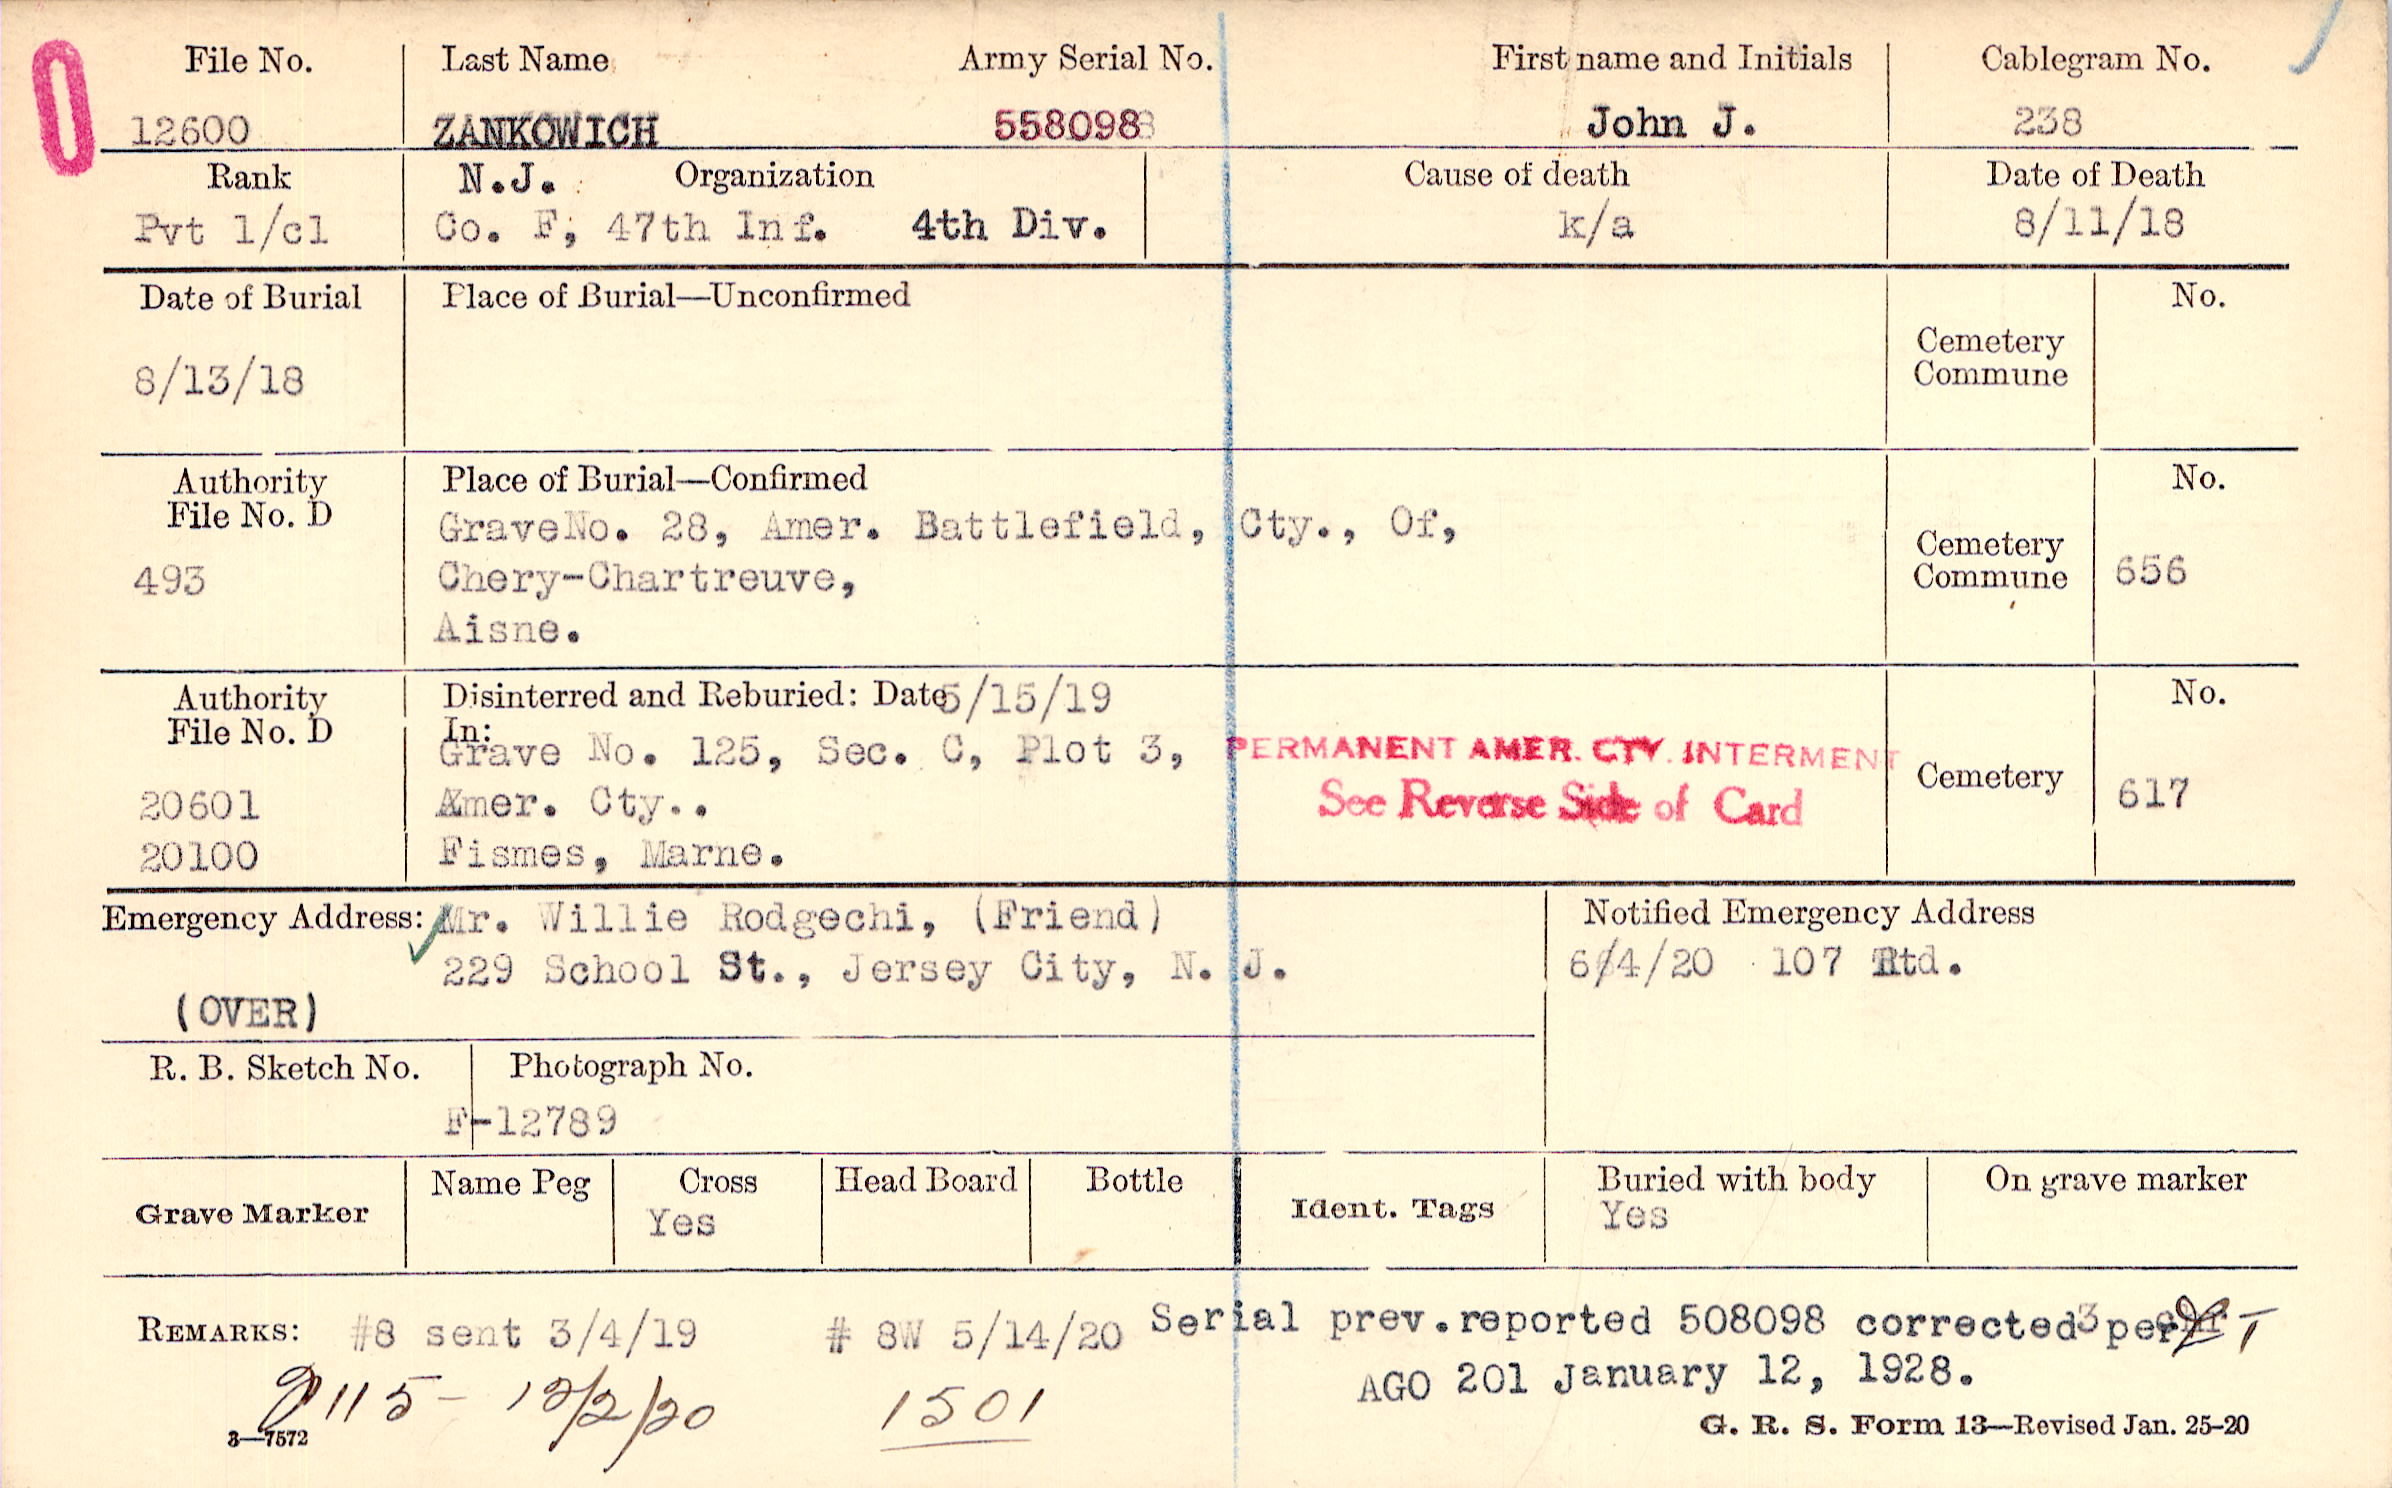 File No. Last Name Army Serial No. First name and Initials Cablegram No.
12600 ZANKOWICH 558098 John J. 238
Rank N.J. Organization Cause of death Date of Death
Pvt 1/cl Co. F, 47th Inf. 4th Div. k/a 8/11/18
Date of Burial Place of Burial—Unconfirmed No.
Cemetery
Commune
8/13/18
Authority Place of Burial—Confirmed No.
File No. D GraveNo. 28, Amer. Battlefield, Cty., Of,
Cemetery
493 Chery-Chartreuve, Commune 656
Aisne.
Authority Disinterred and Reburied: Date 5/15/19 No.
File No. D In:
Grave No. 125, Sec. C, Plot 3, PERMANENT AMER. CTY. INTERMENT
Cemetery 617
20601 Amer. Cty.. See Reverse Side of Card
20100 Fismes, Marne.
Emergency Address: Mr. Willie Rodgechi, (Friend) Notified Emergency Address
229 School St., Jersey City, N. J. 6/4/20 107 Rtd.
(OVER)
R. B. Sketch No. Photograph No.
F-12789
Grave Marker Name Peg Cross Head Board Bottle Ident. Tags Buried with body On grave marker
Yes Yes
REMARKS: #8 sent 3/4/19 # 8W 5/14/20 Serial prev.reported 508098 corrected per
AGO 201 January 12, 1928.
115- 12/2/20 1501
3—7572 G. R. S. Form 13—Revised Jan. 25-20